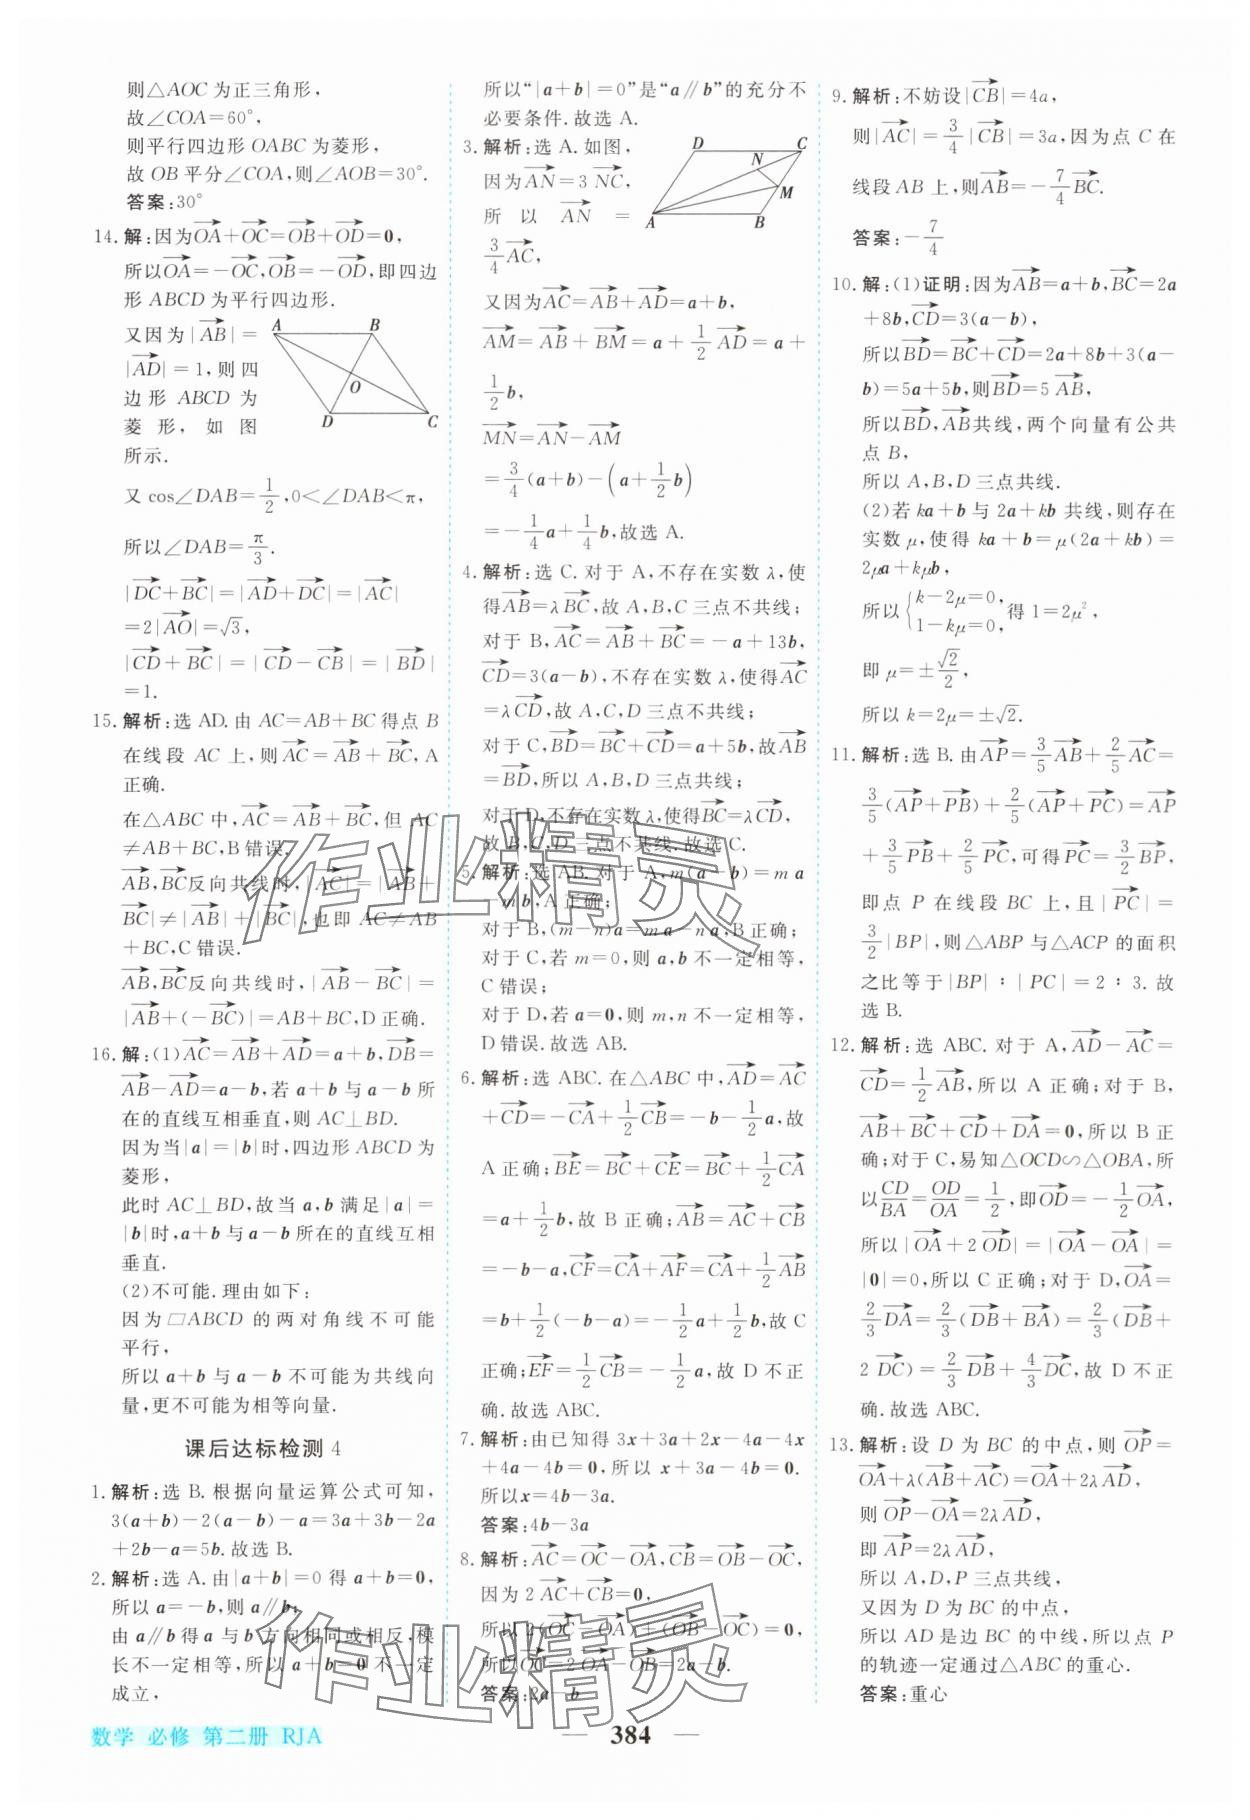 则△AOC 为正三角形,
故∠COA=60°,
则平行四边形 OABC 为菱形,
故 OB 平分∠COA,则∠AOB=30°.
答案:30°
14. 解:因为OA+OC=OB+OD=0,
所以OA=-OC,OB=-OD,即四边
形 ABCD 为平行四边形.
又因为|AB|=
|AD|=1,则四
边形 ABCD 为
菱形,如图
所示.
A B O D C
又 cos∠DAB=1/2,0<∠DAB<π,
所以∠DAB=π/3.
|DC+BC|=|AD+DC|=|AC|
=2|AO|=√3,
|CD+BC|=|CD-CB|=|BD|
=1.
15. 解析:选 AD.由 AC=AB+BC 得点 B
在线段 AC 上,则AC=AB+BC,A
正确.
在△ABC 中,AC=AB+BC,但 AC
≠AB+BC,B 错误.
AB,BC反向共线时,|AC|=|AB+
BC|≠|AB|+|BC|,也即 AC≠AB
+BC,C 错误.
AB,BC反向共线时,|AB-BC|=
|AB+(-BC)|=AB+BC,D 正确.
16. 解:(1)AC=AB+AD=a+b,DB=
AB-AD=a-b,若 a+b 与 a-b 所
在的直线互相垂直,则 AC⊥BD.
因为当|a|=|b|时,四边形 ABCD 为
菱形,
此时 AC⊥BD,故当 a,b 满足|a|=
|b|时,a+b 与 a-b 所在的直线互相
垂直.
(2)不可能.理由如下:
因为□ABCD 的两对角线不可能
平行,
所以 a+b 与 a-b 不可能为共线向
量,更不可能为相等向量.
课后达标检测 4
1. 解析:选 B.根据向量运算公式可知,
3(a+b)-2(a-b)-a=3a+3b-2a
+2b-a=5b.故选 B.
2. 解析:选 A.由|a+b|=0 得 a+b=0,
所以 a=-b,则 a∥b;
由 a∥b 得 a 与 b 方向相同或相反,模
长不一定相等,所以 a+b=0 不一定
成立,
所以“|a+b|=0”是“a∥b”的充分不
必要条件.故选 A.
3. 解析:选 A.如图,
因为AN=3 NC,
所以 AN =
3/4 AC,
D C N M A B
又因为AC=AB+AD=a+b,
AM=AB+BM=a+1/2 AD=a+
1/2 b,
MN=AN-AM
=3/4(a+b)-(a+1/2 b)
=-1/4 a+1/4 b,故选 A.
4. 解析:选 C.对于 A,不存在实数 λ,使
得AB=λBC,故 A,B,C 三点不共线;
对于 B,AC=AB+BC=-a+13b,
CD=3(a-b),不存在实数 λ,使得AC
=λCD,故 A,C,D 三点不共线;
对于 C,BD=BC+CD=a+5b,故AB
=BD,所以 A,B,D 三点共线;
对于 D,不存在实数 λ,使得BC=λCD,
故 B,C,D 三点不共线.故选 C.
5. 解析:选 AB.对于 A,m(a-b)=ma
-mb,A 正确;
对于 B,(m-n)a=ma-na,B 正确;
对于 C,若 m=0,则 a,b 不一定相等,
C 错误;
对于 D,若 a=0,则 m,n 不一定相等,
D 错误.故选 AB.
6. 解析:选 ABC.在△ABC 中,AD=AC
+CD=-CA+1/2 CB=-b-1/2 a,故
A 正确;BE=BC+CE=BC+1/2 CA
=a+1/2 b,故 B 正确;AB=AC+CB
=-b-a,CF=CA+AF=CA+1/2 AB
=b+1/2(-b-a)=-1/2 a+1/2 b,故 C
正确;EF=1/2 CB=-1/2 a,故 D 不正
确.故选 ABC.
7. 解析:由已知得 3x+3a+2x-4a-4x
+4a-4b=0,所以 x+3a-4b=0.
所以x=4b-3a.
答案:4b-3a
8. 解析:AC=OC-OA,CB=OB-OC,
因为 2AC+CB=0,
所以 2(OC-OA)+(OB-OC)=0,
所以OC=2OA-OB=2a-b.
答案:2a-b
9. 解析:不妨设|CB|=4a,
则|AC|=3/4|CB|=3a,因为点 C 在
线段 AB 上,则AB=-7/4 BC.
答案:-7/4
10. 解:(1)证明:因为AB=a+b,BC=2a
+8b,CD=3(a-b),
所以BD=BC+CD=2a+8b+3(a-
b)=5a+5b,则BD=5 AB,
所以BD,AB共线,两个向量有公共
点 B,
所以 A,B,D 三点共线.
(2)若 ka+b 与 2a+kb 共线,则存在
实数 μ,使得 ka+b=μ(2a+kb)=
2μa+kμb,
所以{k-2μ=0, 1-kμ=0, 得 1=2μ²,
即 μ=±√2/2,
所以 k=2μ=±√2.
11. 解析:选 B.由AP=3/5 AB+2/5 AC=
3/5(AP+PB)+2/5(AP+PC)=AP
+3/5 PB+2/5 PC,可得PC=3/2 BP,
即点 P 在线段 BC 上,且|PC|=
3/2|BP|,则△ABP 与△ACP 的面积
之比等于|BP|∶|PC|=2∶3.故
选 B.
12. 解析:选 ABC.对于 A,AD-AC=
CD=1/2 AB,所以 A 正确;对于 B,
AB+BC+CD+DA=0,所以 B 正
确;对于 C,易知△OCD∽△OBA,所
以CD/BA=OD/OA=1/2,即OD=-1/2 OA,
所以|OA+2 OD|=|OA-OA|=
|0|=0,所以 C 正确;对于 D,OA=
2/3 DA=2/3(DB+BA)=2/3(DB+
2 DC)=2/3 DB+4/3 DC,故 D 不正
确.故选 ABC.
13. 解析:设 D 为 BC 的中点,则 OP=
OA+λ(AB+AC)=OA+2λAD,
则 OP-OA=2λAD,
即 AP=2λAD,
所以 A,D,P 三点共线,
又因为 D 为 BC 的中点,
所以 AD 是边 BC 的中线,所以点 P
的轨迹一定通过△ABC 的重心.
答案:重心
作业精灵
作业精灵
数学 必修 第二册 RJA
384